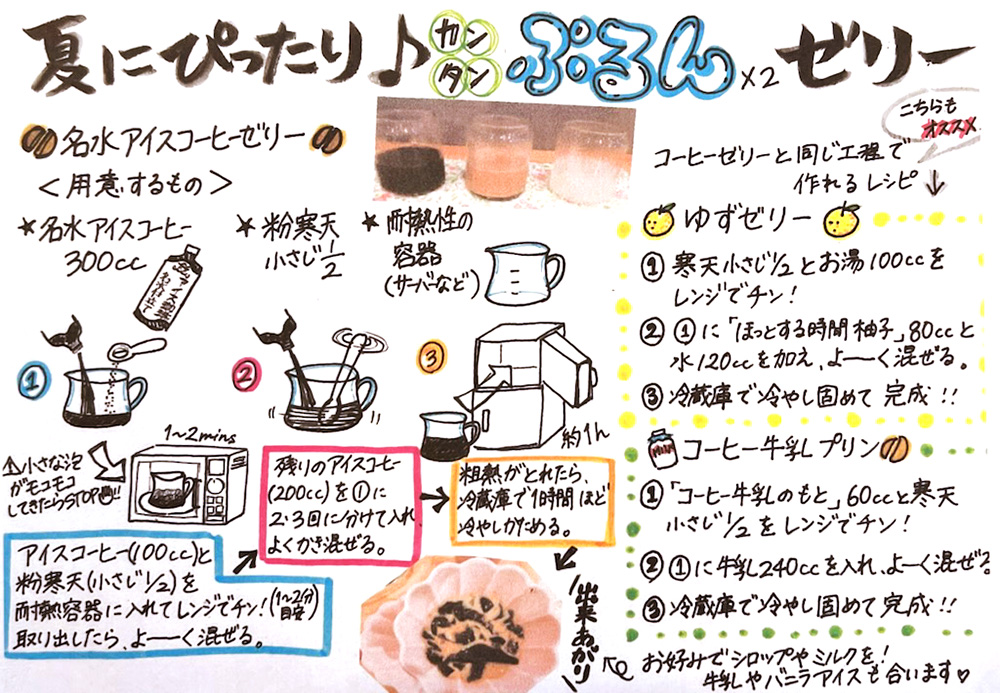 夏にぴったり♪
カンタン
ぷるんゼリー
×2
こちらも
オススメ
名水アイスコーヒーゼリー
<用意するもの>
★名水アイスコーヒー
300cc
★粉寒天
小さじ1/2
★耐熱性の
容器
(サーバーなど)
①
②
③
1~2mins
約1h
⚠小さな泡
がモコモコ
してきたらSTOP!!
アイスコーヒー(100cc)と
粉寒天(小さじ1/2)を
耐熱容器に入れてレンジでチン!(1~2分目安)
取り出したら、よーーく混ぜる。
残りのアイスコーヒー
(200cc)を①に
2・3回に分けて入れ、
よくかき混ぜる。
粗熱がとれたら、
冷蔵庫で1時間ほど
冷やしかためる。
出来あがり
コーヒーゼリーと同じ工程で
作れるレシピ↓
ゆずゼリー
① 寒天小さじ1/2とお湯100ccを
レンジでチン!
② ①に「ほっとする時間 柚子」80ccと
水120ccを加え、よーーく混ぜる。
③ 冷蔵庫で冷やし固めて完成!!
MILK
コーヒー牛乳プリン
① 「コーヒー牛乳のもと」60ccと寒天
小さじ1/2をレンジでチン!
② ①に牛乳240ccを入れ、よーく混ぜる。
③ 冷蔵庫で冷やし固めて完成!!
お好みでシロップやミルクを!
牛乳やバニラアイスも合います♡